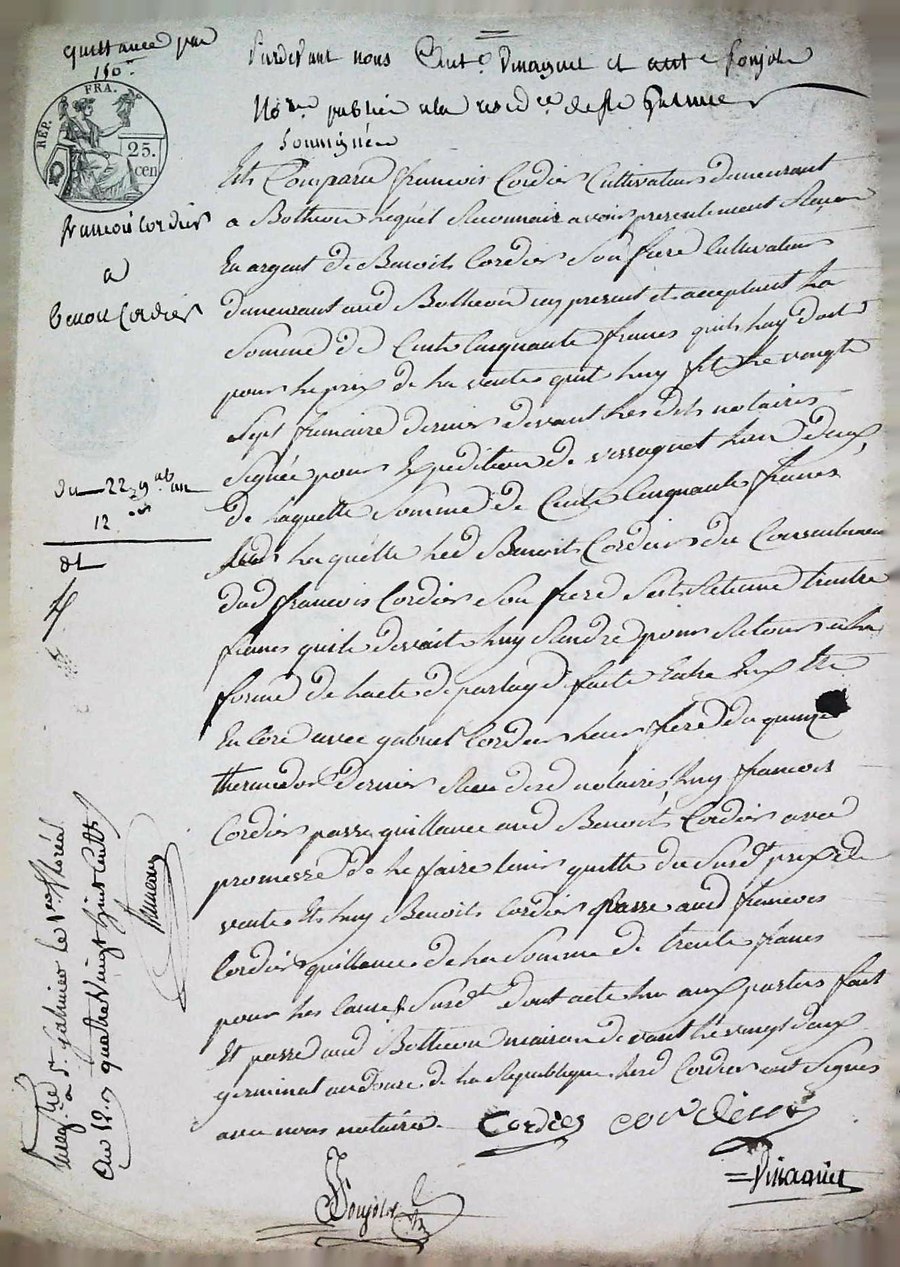 quittance par
150
REP. FRA.
25.
cen
francois Cordier
a
benoit Cordier
du 22 g.nal an
12
Pardevant nous Vinagnie et
publics a la
Soussignées
Est Comparu francois Cordier Cultivateur demeurant
a Botheon Lequel Reconnait avoir presentement Receu
En argent de Benoit Cordier Son frere Cultivateur
demeurant aud Botheon icy present et acceptant La
Somme de Cent Cinquante francs quil luy doit
pour le prix de la vente quil luy fit le vingt
Sept frimaire dernier devant lesdits notaires
Signée pour Expedition de
de laquelle Somme de Cent Cinquante francs
laquelle led Benoit Cordier du Consentement
dud francois Cordier Son frere sest Retenu trente
francs quil devait luy Randre pour Retour a la
forme de lacte de partage faite Entre Eux
Encore avec gabriel Cordier leur frere du quinze
thermidor dernier notaires luy francois
Cordier passe quittance aud Benoit Cordier avec
promesse de le faire tenir quitte du Surdt prix de
vente Et luy Benoit Cordier passe aud francois
Cordier quittance de la Somme de trente francs
pour les causes Surdt dont acte lu aux parties fait
Et passé aud Botheon maison devant le vingt deux
germinal an douze de la Republique lesd Cordier ont Signes
avec nous notaires.
Cordier cordier
Vinagnie
fonjols
Enregtré a St Galmier le 1er floréal
an 12